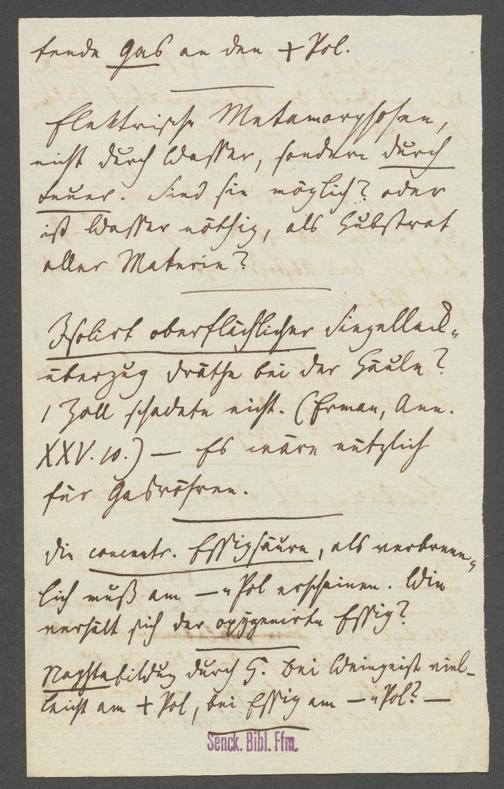 tende Gas an den + Pol.
Elektrische Metamorphosen,
nicht durch Wasser, sondern durch
Feuer. Sind sie möglich? oder
ist Wasser nöthig, als Substrat
aller Materie?
Isolirt oberflächlicher Siegellack-
überzug Dräthe bei der Säule?
1 Zoll schadete nicht. (Erman, Ann.
XXV. 10.) — Es wäre nützlich
für Gasröhren.
Die concentr. Essigsäure, als verbrenn-
lich muß am — Pol erscheinen. Wie
verhält sich der oxygenirte Essig?
Naphtabildung durch G. Bei Weingeist viel-
leicht am + Pol, bei Essig am — Pol? —
Senck. Bibl. Ffm.